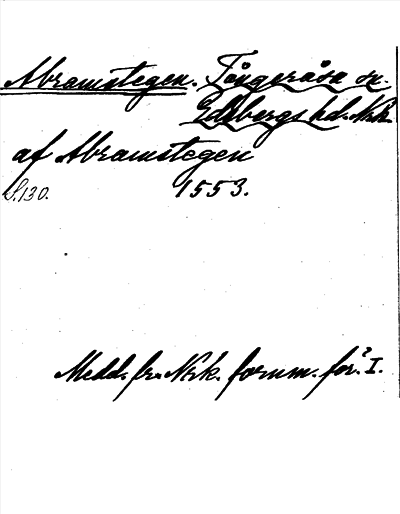 Abramstegen. Tångeråsa sn.
Edsbergs hd. Nrk.
af Abramstegen
S. 130. 1553.
Medd. fr. Nrk. fornm. för. I.